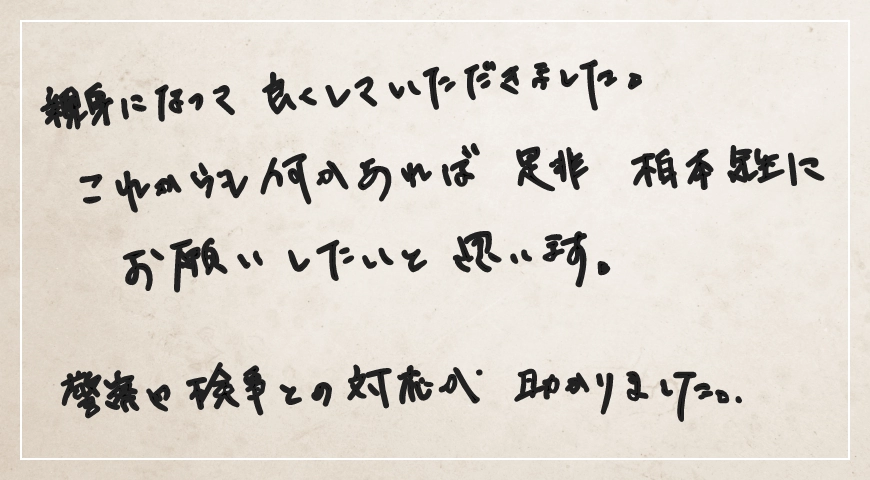 親身になって 良くしていただきました。
これからも何かあれば 是非 柏本先生に
お願い したいと 思います。
警察や検事との対応が 助かりました。